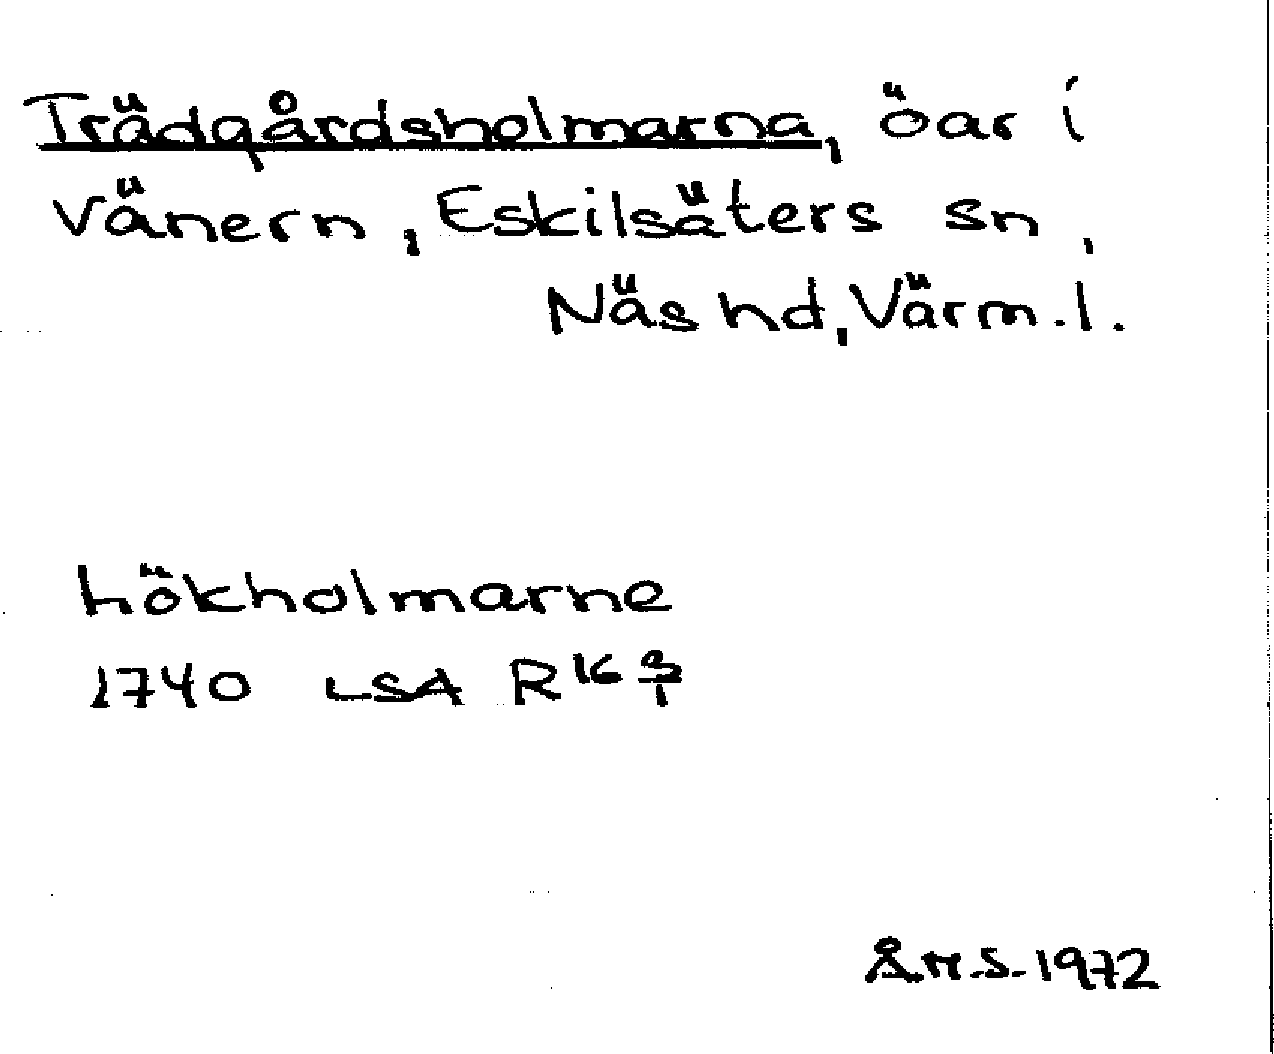 Trädgårdsholmarna, öar i
Vänern, Eskilsäters sn,
Näs hd, Värm. l.
hökholmarne
1740 LSA R16 3/1
Å.H.S. 1972